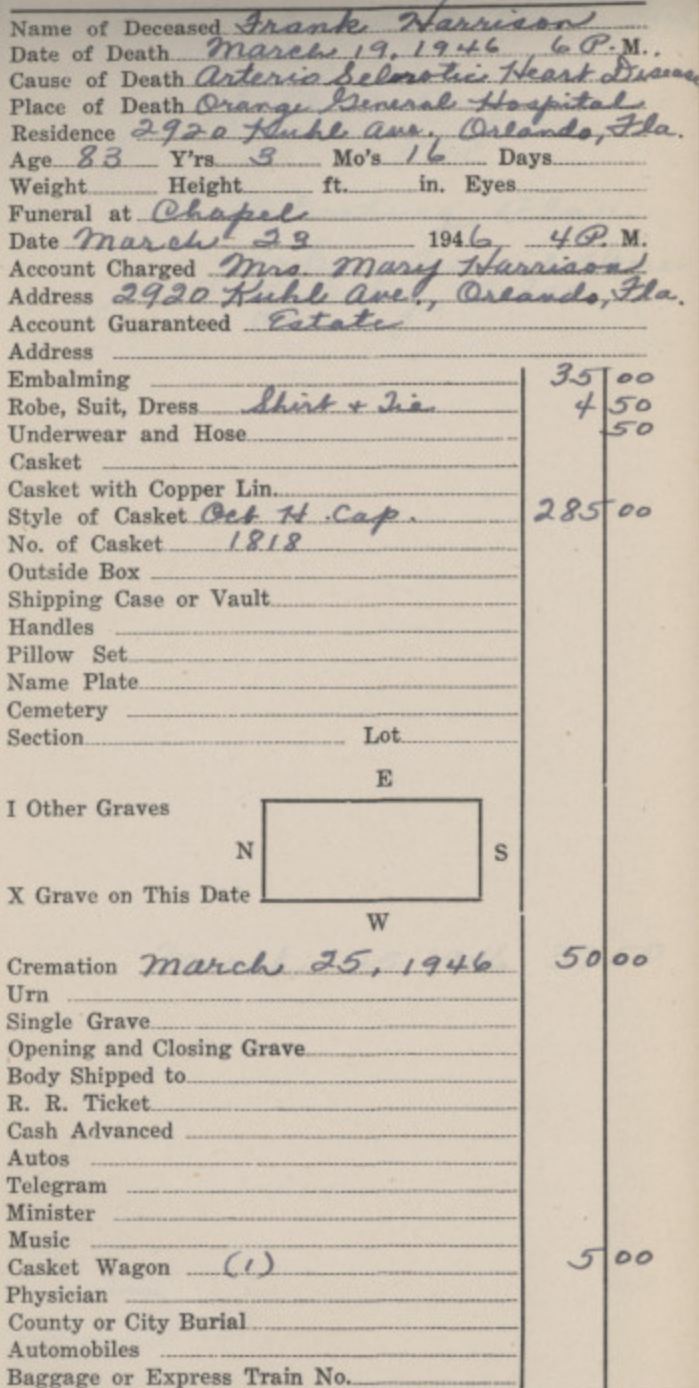 Name of Deceased Frank Harrison
Date of Death March 19, 1946 6 P. M.
Cause of Death Arterio Sclerotic Heart Disease
Place of Death Orange General Hospital
Residence 2920 Kuhl Ave., Orlando, Fla.
Age 83 Y'rs 3 Mo's 16 Days
Weight Height ft. in. Eyes
Funeral at Chapel
Date March 23 1946 4 P. M.
Account Charged Mrs. Mary Harrison
Address 2920 Kuhl Ave., Orlando, Fla.
Account Guaranteed Estate
Address
Embalming 35 00
Robe, Suit, Dress Shirt + Tie 4 50
Underwear and Hose 50
Casket
Casket with Copper Lin.
Style of Casket Oct H. Cap. 285 00
No. of Casket 1818
Outside Box
Shipping Case or Vault
Handles
Pillow Set
Name Plate
Cemetery
Section Lot
E
I Other Graves
N S
X Grave on This Date
W
Cremation March 25, 1946 50 00
Urn
Single Grave
Opening and Closing Grave
Body Shipped to
R. R. Ticket
Cash Advanced
Autos
Telegram
Minister
Music
Casket Wagon (1) 5 00
Physician
County or City Burial
Automobiles
Baggage or Express Train No.